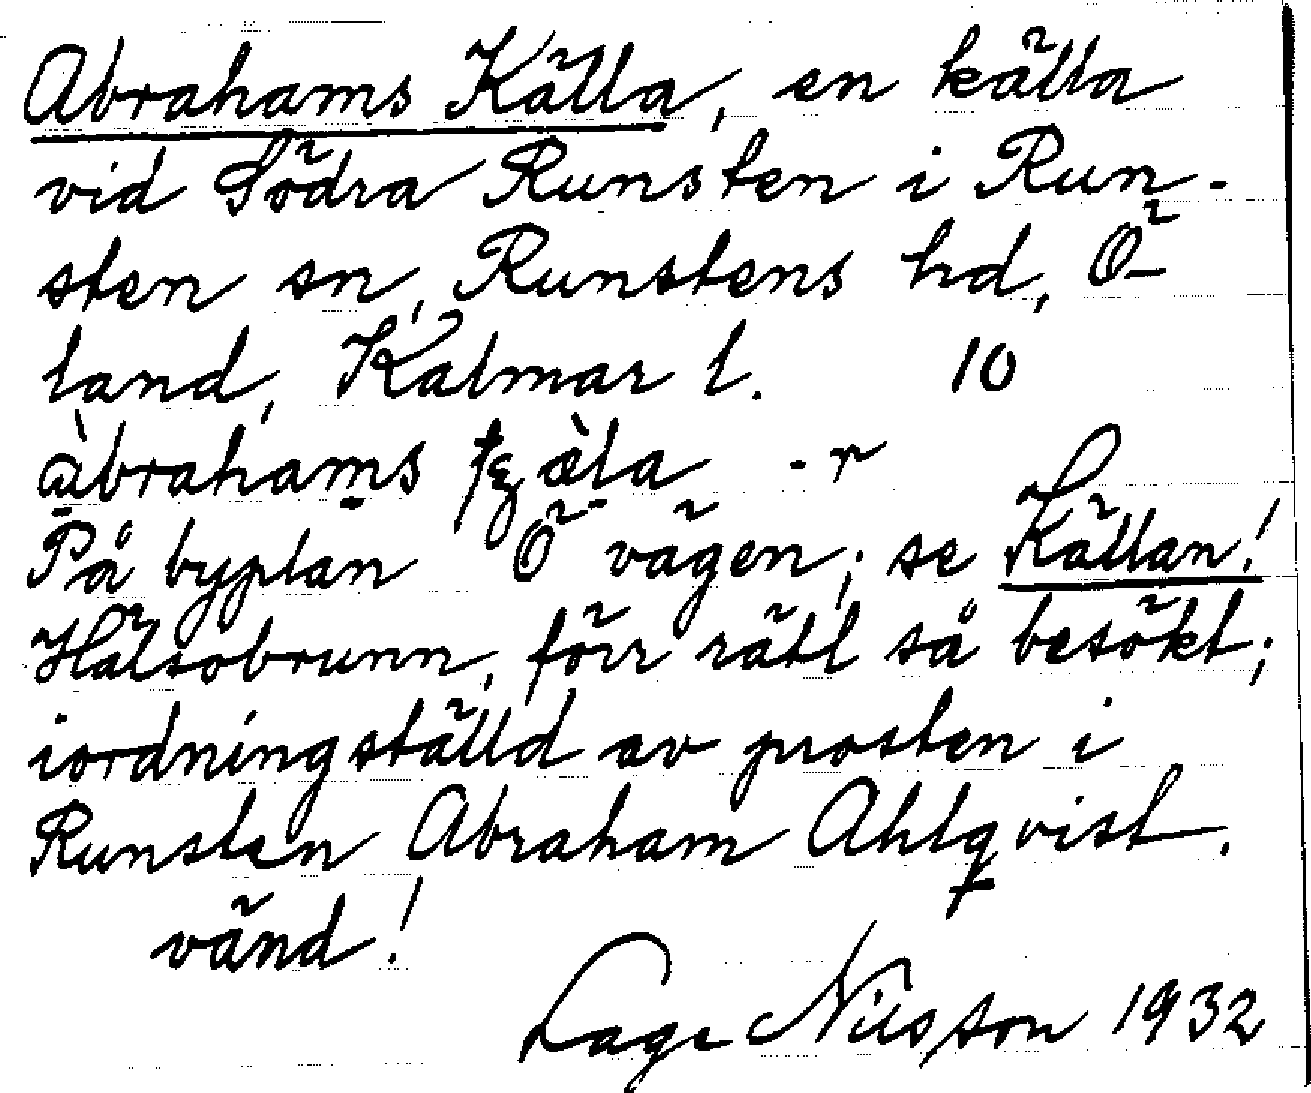 Abrahams Källa, en källa
vid Södra Runsten i Run-
sten sn, Runstens hd, Ö-
land, Kalmar l. 10
àbrahams òla -r
På byplan Ö vägen; se Källan!
Hälsobrunn, förr rätt så besökt;
iordningställd av prosten i
Runsten Abraham Ahlqvist.
vänd!
Lage Nilsson 1932